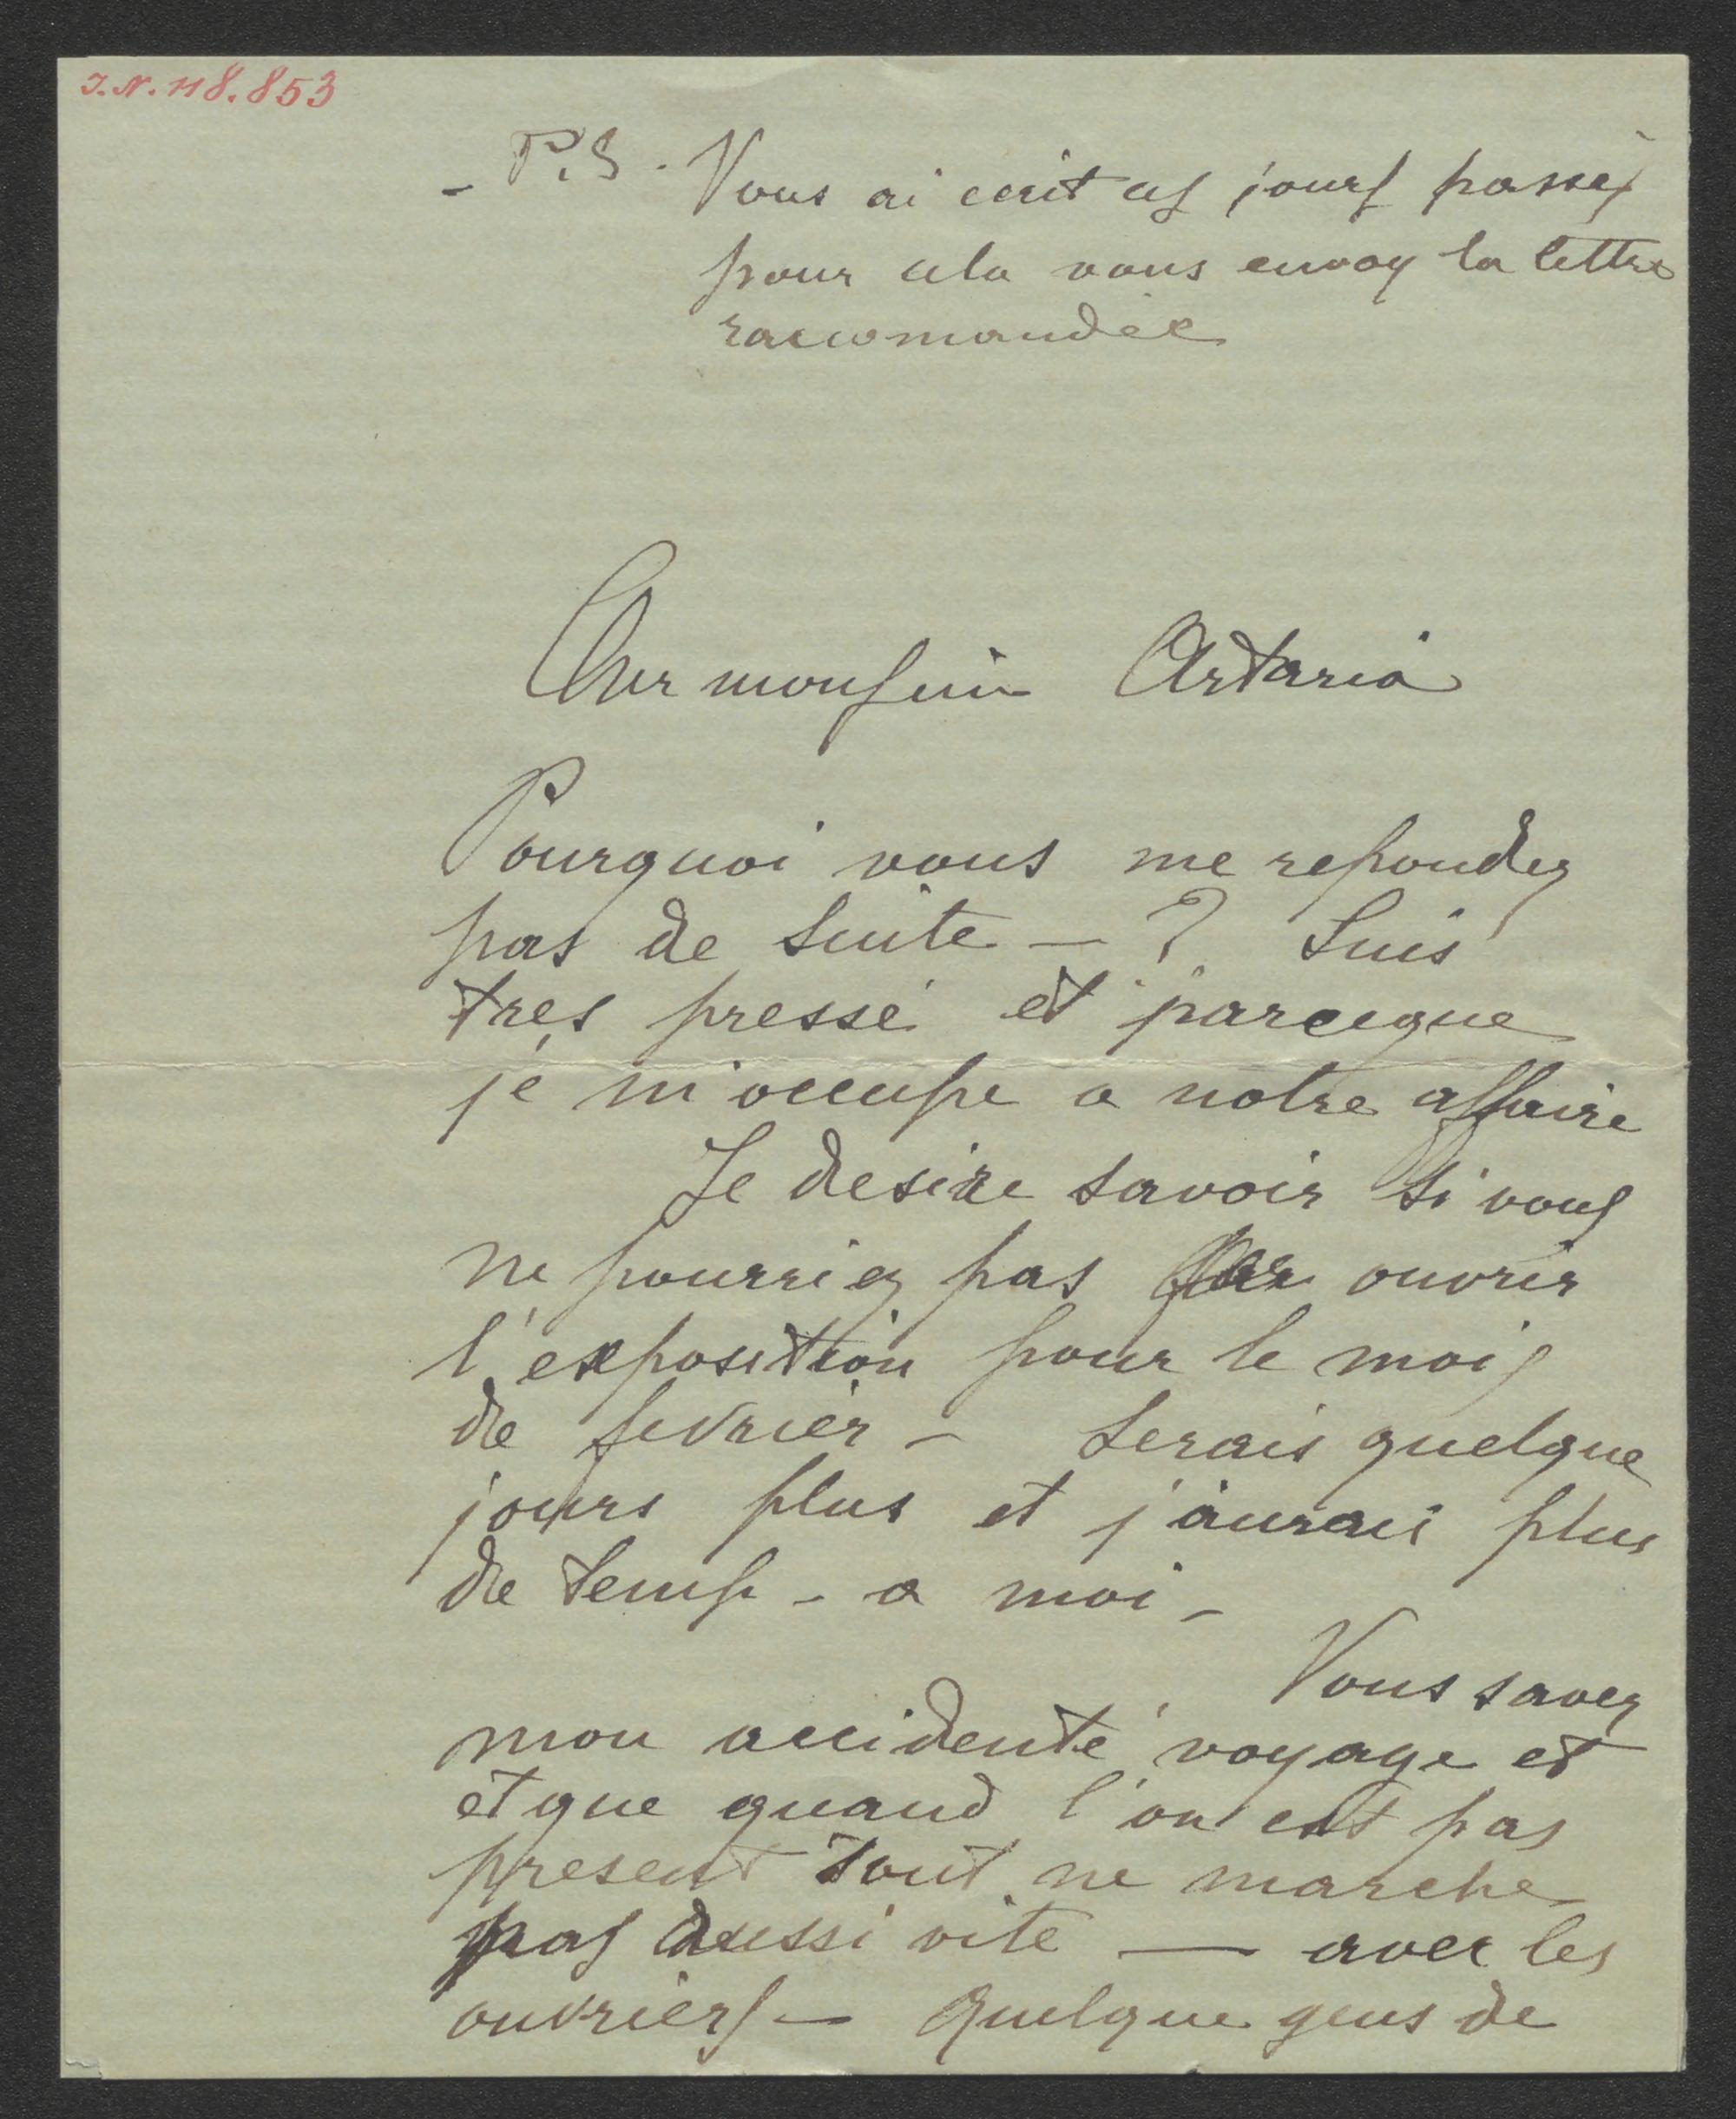 J.N. 118.853
- P.S. Vous ai ecrit ces jours passés
pour cela vous envoy la lettre
raccomandée
Cher monsieur Artaria
Pourquoi vous me repondez
pas de suite — ? Suis
tres pressé et parceque
je m'occupe a notre affaire
Je desire savoir si vous
ne pourriez pas ouvrir
l'exposition pour le mois
de fevrier - Serais quelque
jours plus et j'aurais plus
de temp - a moi -
Vous savez
mon accidenté voyage et
et que quand l'on est pas
present tout ne marche
pas aussi vite — avec les
ouvriers — Quelque gens de